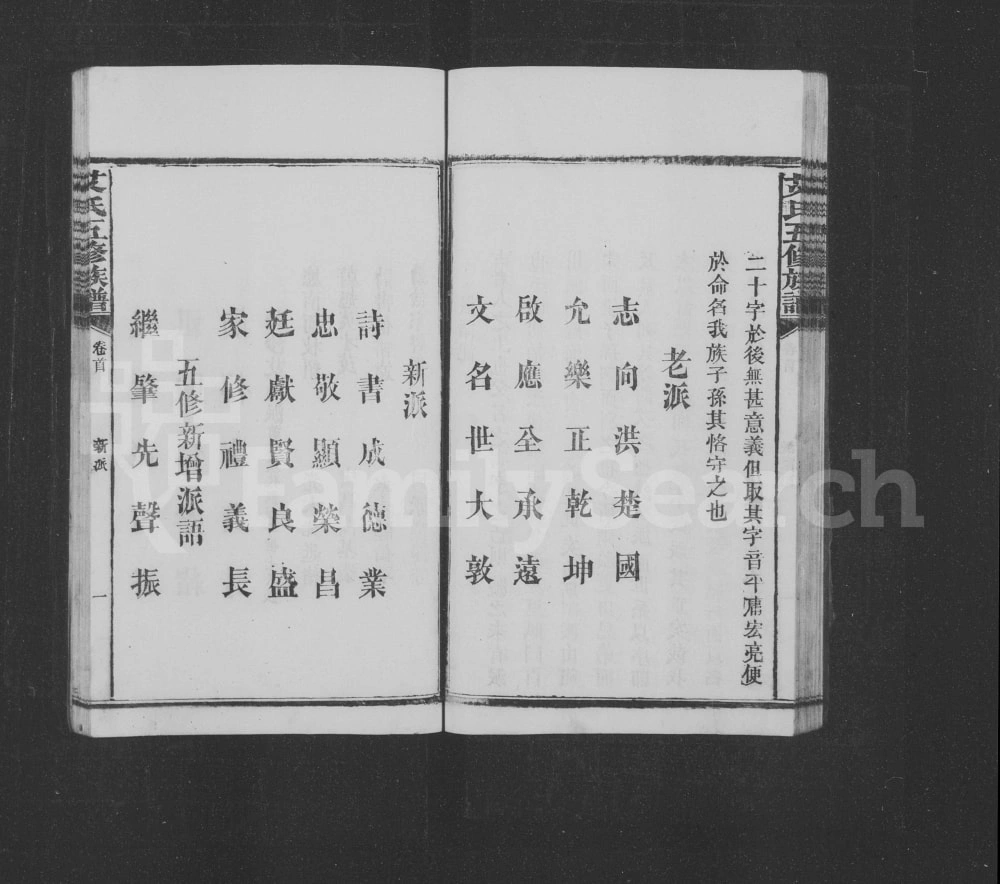 艾氏五修族譜
二十字於後無甚意義但取其字音平𦘕宏亮便
於命名我族子孫其恪守之也
老派
志向洪楚國
允樂正乾坤
啟應全承遠
文名世大敦
新派
詩書成德業
忠敬顯榮昌
廷獻賢良盛
家修禮義長
五修新增派語
繼肇先聲振
艾氏五修族譜
卷首
新派
一
FamilySearch